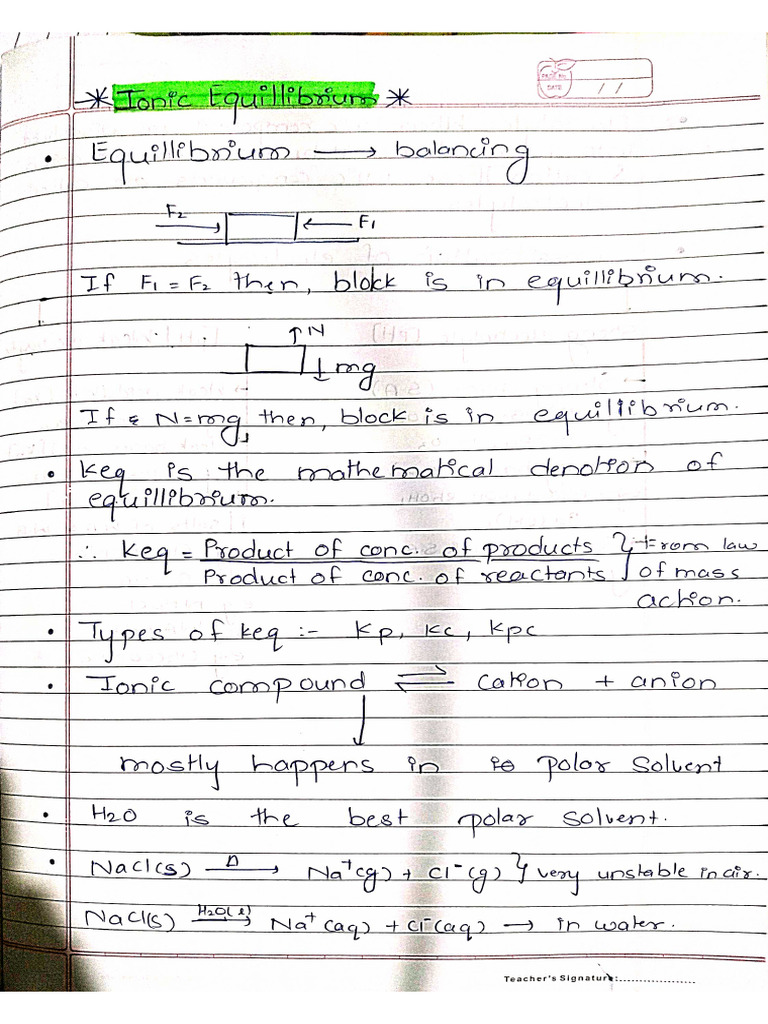 * Ionic Equillibrium *
DATE / /
• Equillibrium → balancing
F₂ F₁
If F₁ = F₂ then, block is in equillibrium.
↑N
↓mg
If N=mg, then, block is in equilibrium.
• Keq is the mathematical denotion of
equillibrium.
∴ Keq = Product of conc. of products } From law
Product of conc. of reactants of mass
action.
• Types of Keq :- Kp, Kc, Kpc
• Ionic compound ⇌ cation + anion
↓
mostly happens in polar solvent
• H2O is the best polar solvent.
• NaCl(s) —Δ→ Na⁺(g) + Cl⁻(g) } very unstable in air.
NaCl(s) —H2O(l)→ Na⁺(aq) + Cl⁻(aq) → in water.
Teacher's Signature:..................